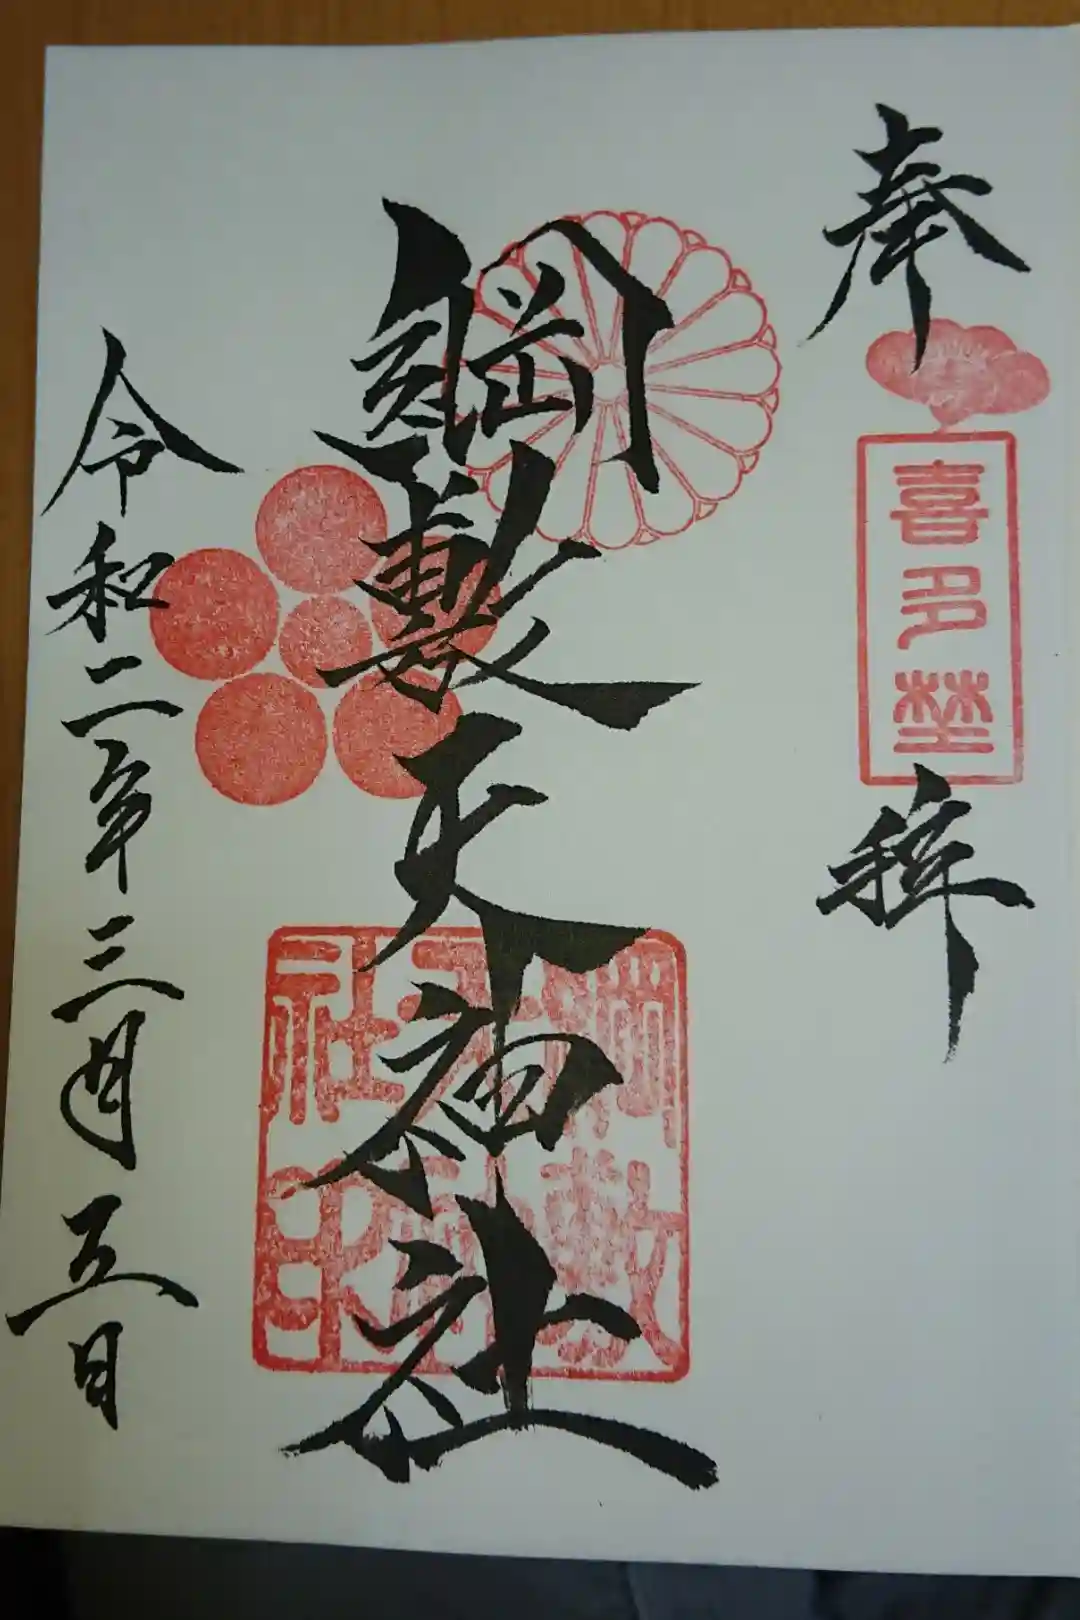 奉拝
喜多埜
綱敷天神社
綱敷天神社印
令和二年三月五日